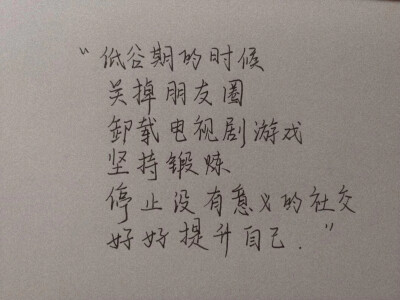 “低谷期的时候
关掉朋友圈
卸载电视剧游戏
坚持锻炼
停止没有意义的社交
好好提升自己.”